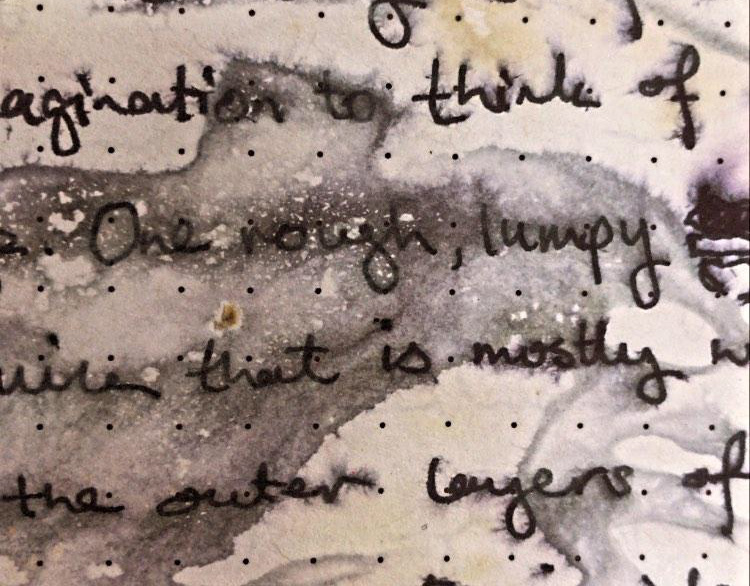 agination to think of
. One rough, lumpy
that is mostly
the outer layers of